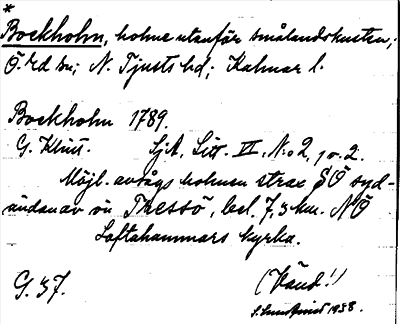 *
Bockholm, holme utanför smålandskusten;
Ö. Ed sn; N. Tjusts hd; Kalmar l.
Bockholm 1789.
G. Klint. SjA, Litt. VI, N:o 2, p. 2.
Möjl. avsågs holmen strax SÖ syd-
ändan av ön Thessö, bel. 7,3 km. NÖ
Loftahammars kyrka.
G. 37. (Vänd!)
1938.